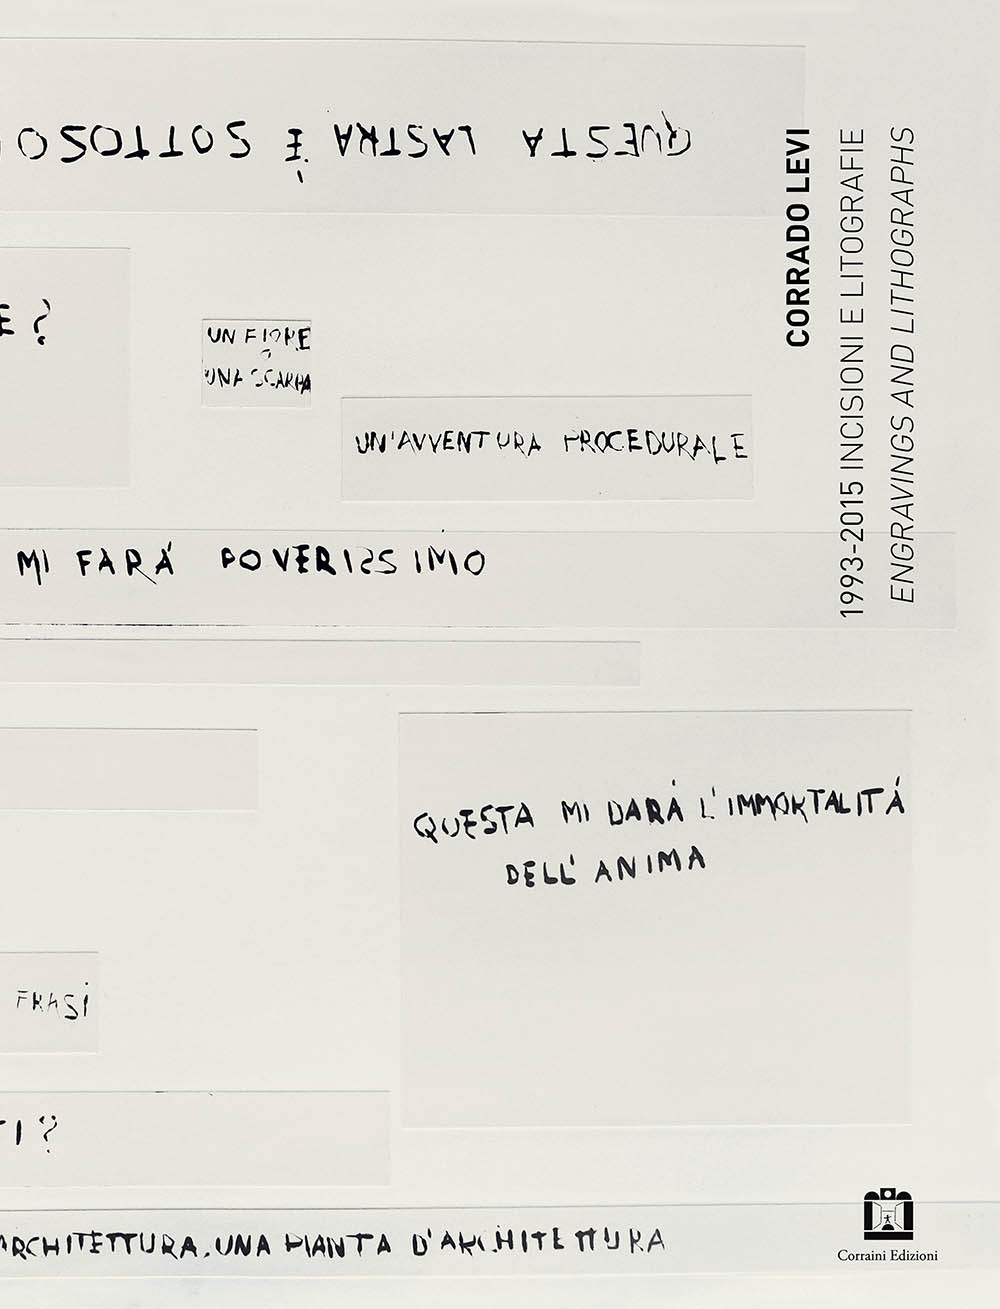 QUESTA LASTRA È SOTTOSO
CORRADO LEVI
1993-2015 INCISIONI E LITOGRAFIE
ENGRAVINGS AND LITHOGRAPHS
E?
UN FIORE
O
UNA SCARPA
UN'AVVENTURA PROCEDURALE
MI FARÁ POVERISSIMO
QUESTA MI DARÁ L'IMMORTALITÁ
DELL'ANIMA
FRASI
I?
ARCHITETTURA, UNA PIANTA D'ARCHITETTURA
Corraini Edizioni